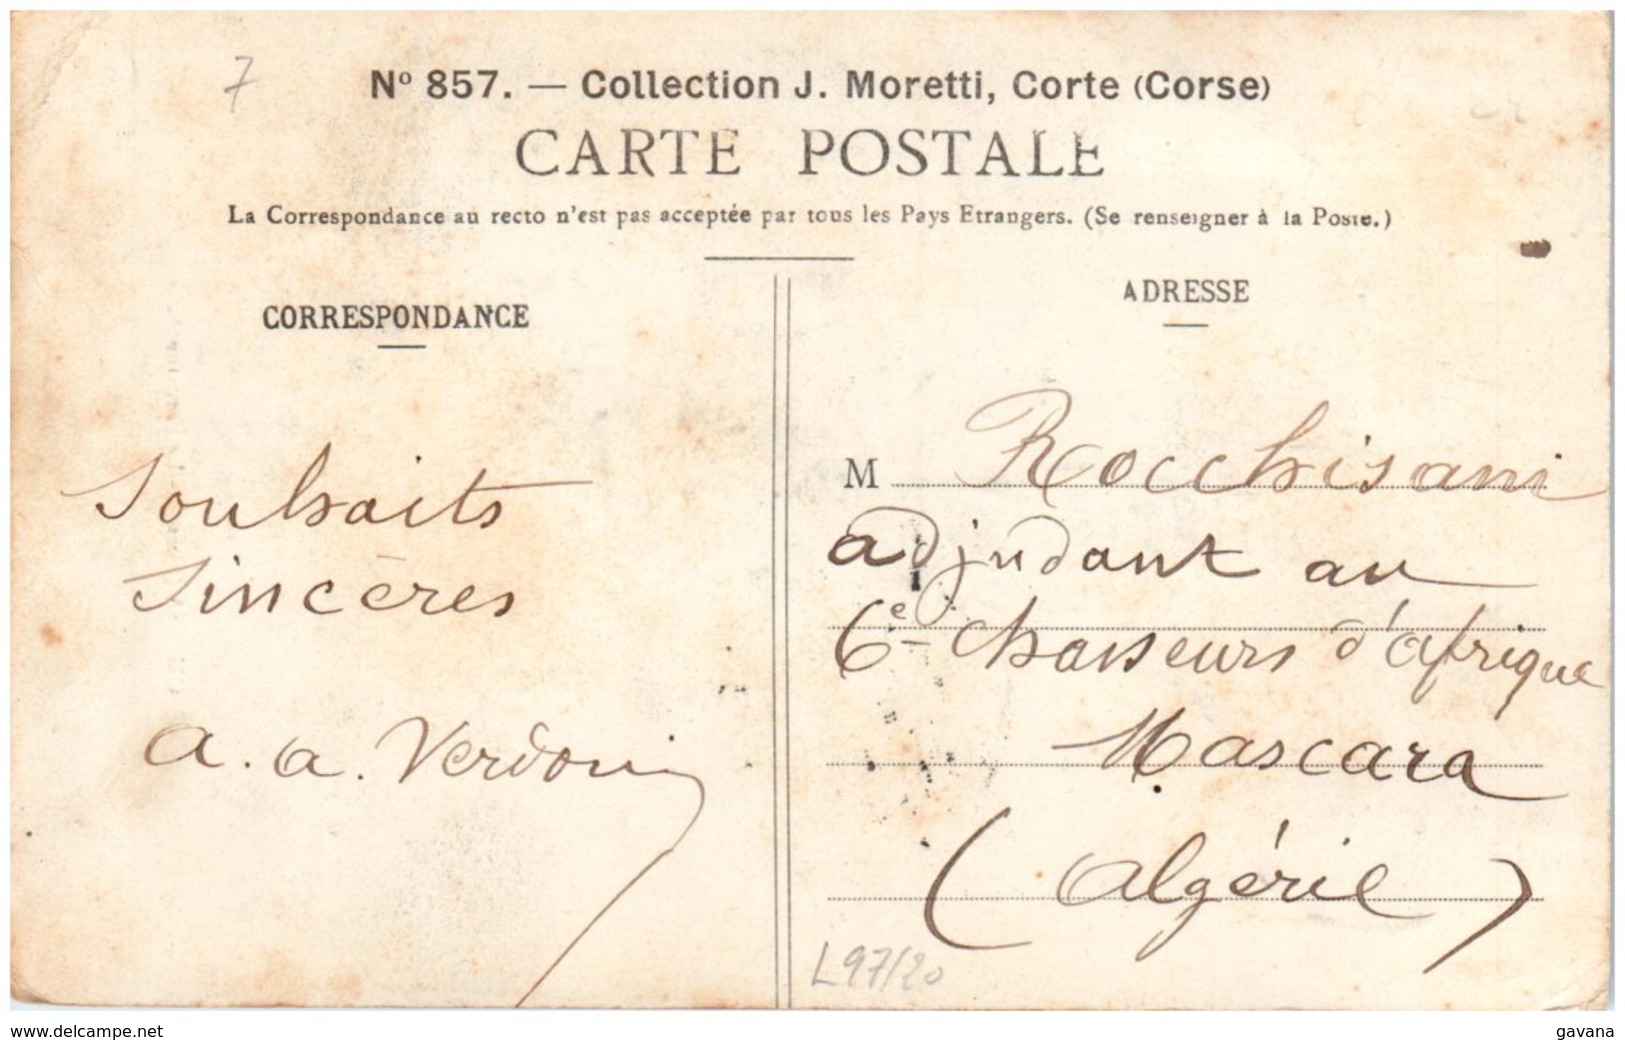 7
Nº 857. — Collection J. Moretti, Corte (Corse)
CARTE POSTALE
La Correspondance au recto n'est pas acceptée par tous les Pays Etrangers. (Se renseigner à la Poste.)
CORRESPONDANCE
Souhaits
Sincères
a. a. Verdoni
ADRESSE
M Rocchisani
adjudant au
6e Chasseurs d'afrique
Mascara
(Algérie)
L97/20
www.delcampe.net
gavana